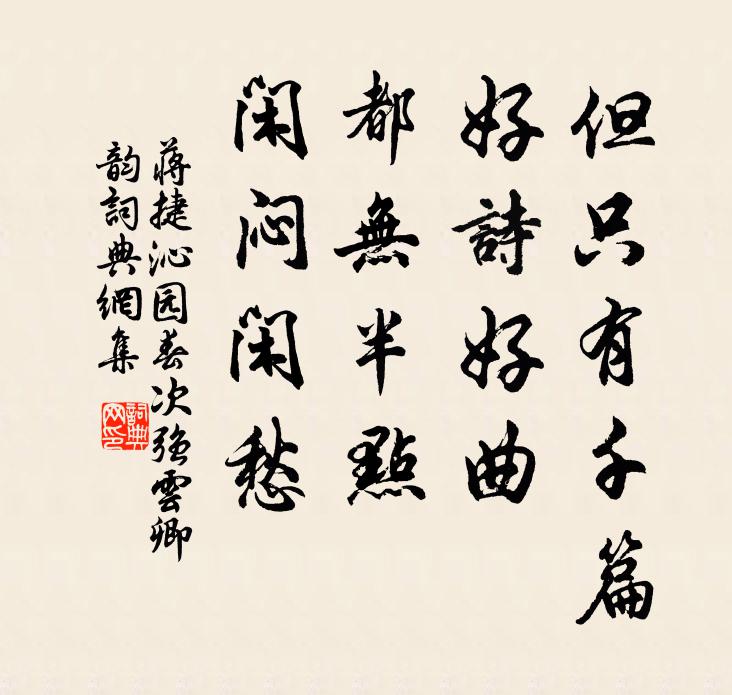 但只有千篇
好詩好曲
都無半點
閑闷閑愁
蔣捷沁园春次强雲卿
韵詞典網集
詞典
网印